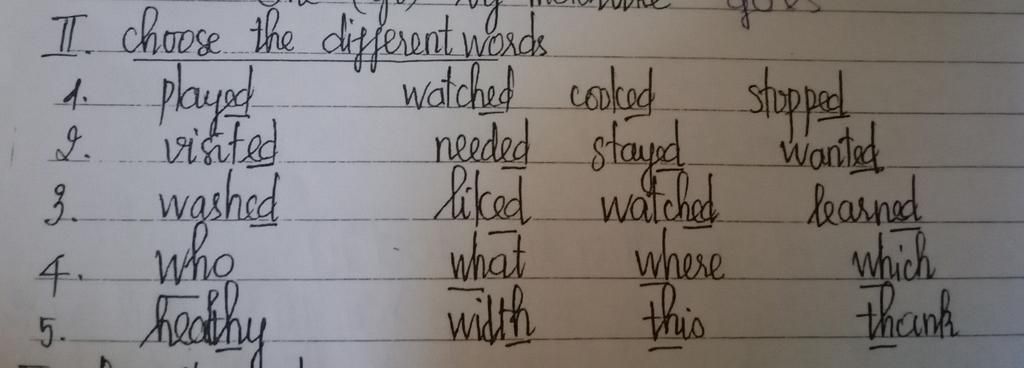 goes
II. choose the different words
1. played watched cooked stopped
2. visited needed stayed wanted
3. washed liked watched learned
4. who what where which
5. healthy width this thank